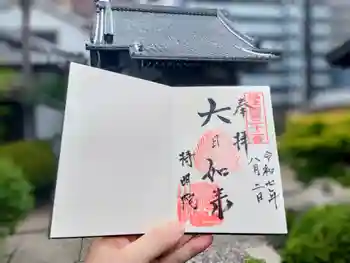 奉拝
令和七年
八月二日
大日如来
持明院